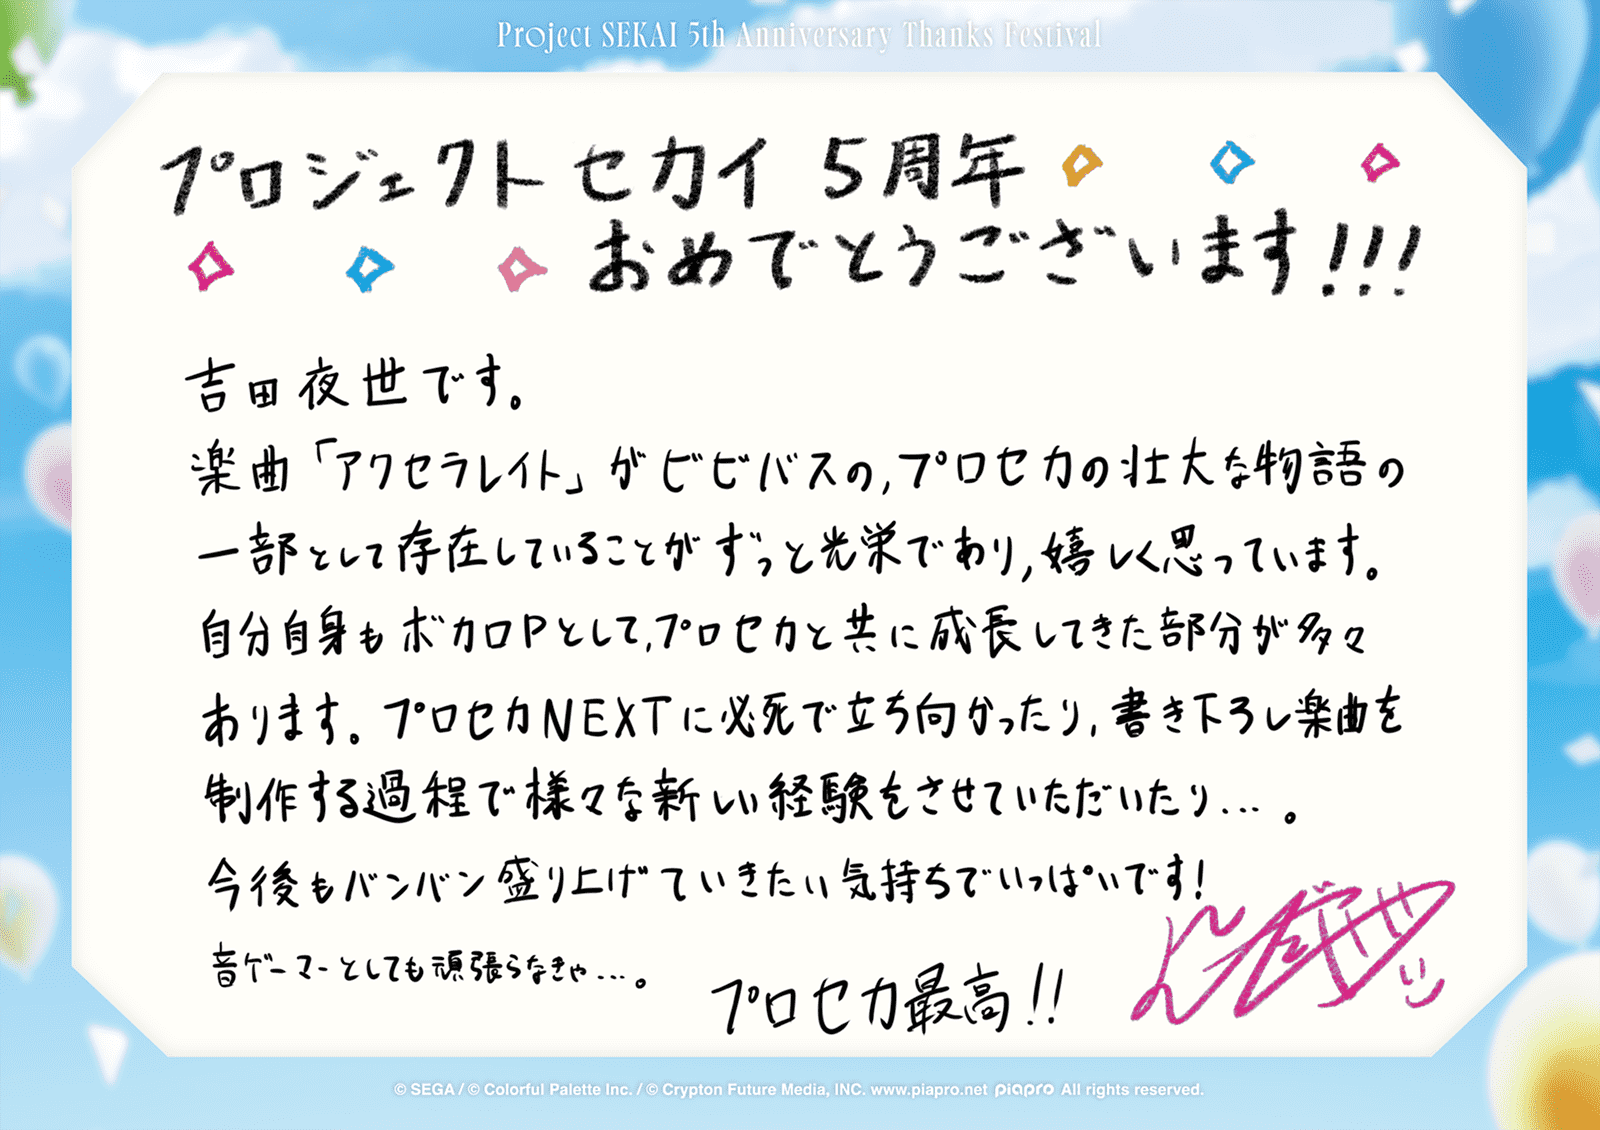 Project SEKAI 5th Anniversary Thanks Festival
プロジェクト セカイ 5周年
おめでとうございます!!!
吉田夜世です。
楽曲「アクセラレイト」がビビバスの,プロセカの壮大な物語の
一部として存在していることがずっと光栄であり,嬉しく思っています。
自分自身もボカロPとして,プロセカと共に成長してきた部分が多々
あります。プロセカNEXTに必死で立ち向かったり,書き下ろし楽曲を
制作する過程で様々な新しい経験をさせていただいたり...。
今後もバンバン盛り上げていきたい気持ちでいっぱいです!
音ゲーマーとしても頑張らなきゃ...。
プロセカ最高!!
よしだやせい
© SEGA / © Colorful Palette Inc. / © Crypton Future Media, INC. www.piapro.net piapro All rights reserved.